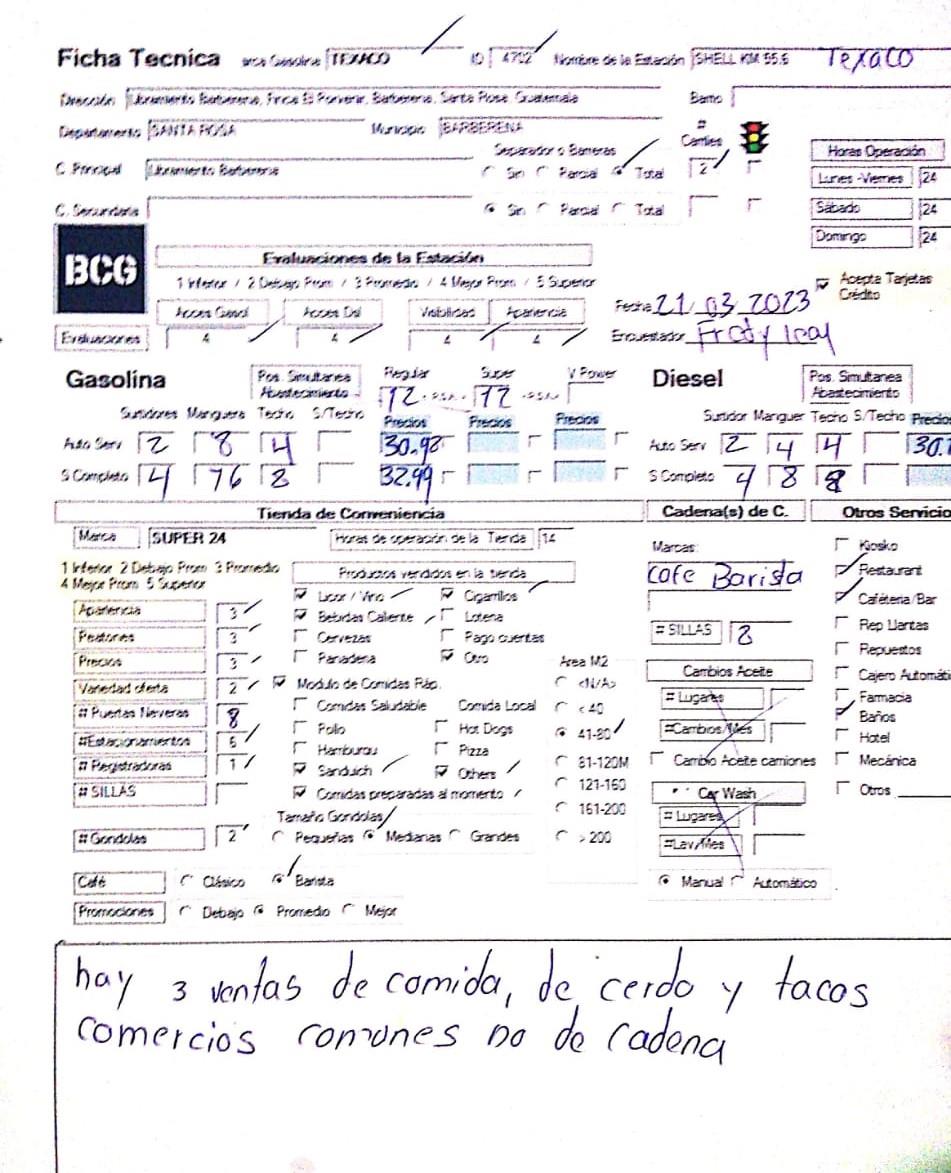 Ficha Tecnica arca Gasolina TEXACO ID 4702 Nombre de la Estación SHELL KM 55.6 Texaco
Dirección Libramiento Barberena, Finca El Porvenir, Barberena, Santa Rosa, Guatemala Barrio
Departamento SANTA ROSA Municipio BARBERENA
Separador o Barreras # Carriles
C. Principal Libramiento Barberena Sin Parcial Total 2
Horas Operación
Lunes -Viernes 24
C. Secundaria Sin Parcial Total
Sábado 24
Domingo 24
BCG
Evaluaciones de la Estación
1 Inferior / 2 Debajo Prom / 3 Promedio / 4 Mejor Prom / 5 Superior
Acepta Tarjetas Crédito
Acces Gasol Acces Dsl Visibilidad Apariencia
Fecha 21 03 2023
Evaluaciones 4 4 4 4
Encuestador Fredy
Gasolina Pos. Simultanea Abastecimiento Regular Super V Power
Diesel Pos. Simultanea Abastecimiento
Surtidores Manguera Techo S/Techo Precios Precios Precios
Surtidor Manguer Techo S/Techo Precio
Auto Serv 2 8 4 30.98
Auto Serv 2 4 4 30.
S Completo 4 16 8 32.99
S Completo 4 8 8
Tienda de Conveniencia Cadena(s) de C. Otros Servicio
Marca SUPER 24 Horas de operación de la Tienda 14
1 Inferior 2 Debajo Prom 3 Promedio
4 Mejor Prom 5 Superior
Productos vendidos en la tienda
Apariencia 3
Peatones 3
Precios 3
Variedad oferta 2
# Puertas Neveras 8
#Estacionamientos 6
# Registradoras 1
# SILLAS
# Gondolas 2
Licor / Vino Cigarrillos
Bebidas Caliente Loteria
Cervezas Pago cuentas
Panaderia Otro
Modulo de Comidas Ráp.
Comidas Saludable Comida Local
Pollo Hot Dogs
Hamburgu Pizza
Sanduich Others
Comidas preparadas al momento
Tamaño Gondolas
Pequeñas Medianas Grandes
Area M2
<N/A>
< 40
41-80
81-120M
121-160
161-200
> 200
Marcas:
Cafe Barista
# SILLAS 8
Cambios Aceite
# Lugares
#Cambios/Mes
Cambio Aceite camiones
Car Wash
# Lugares
#Lav/Mes
Manual Automático
Kiosko
Restaurant
Cafeteria/Bar
Rep Llantas
Repuestos
Cajero Automáti
Farmacia
Baños
Hotel
Mecánica
Otros
Café Clásico Barista
Promociones Debajo Promedio Mejor
hay 3 ventas de comida, de cerdo y tacos
comercios comunes no de cadena